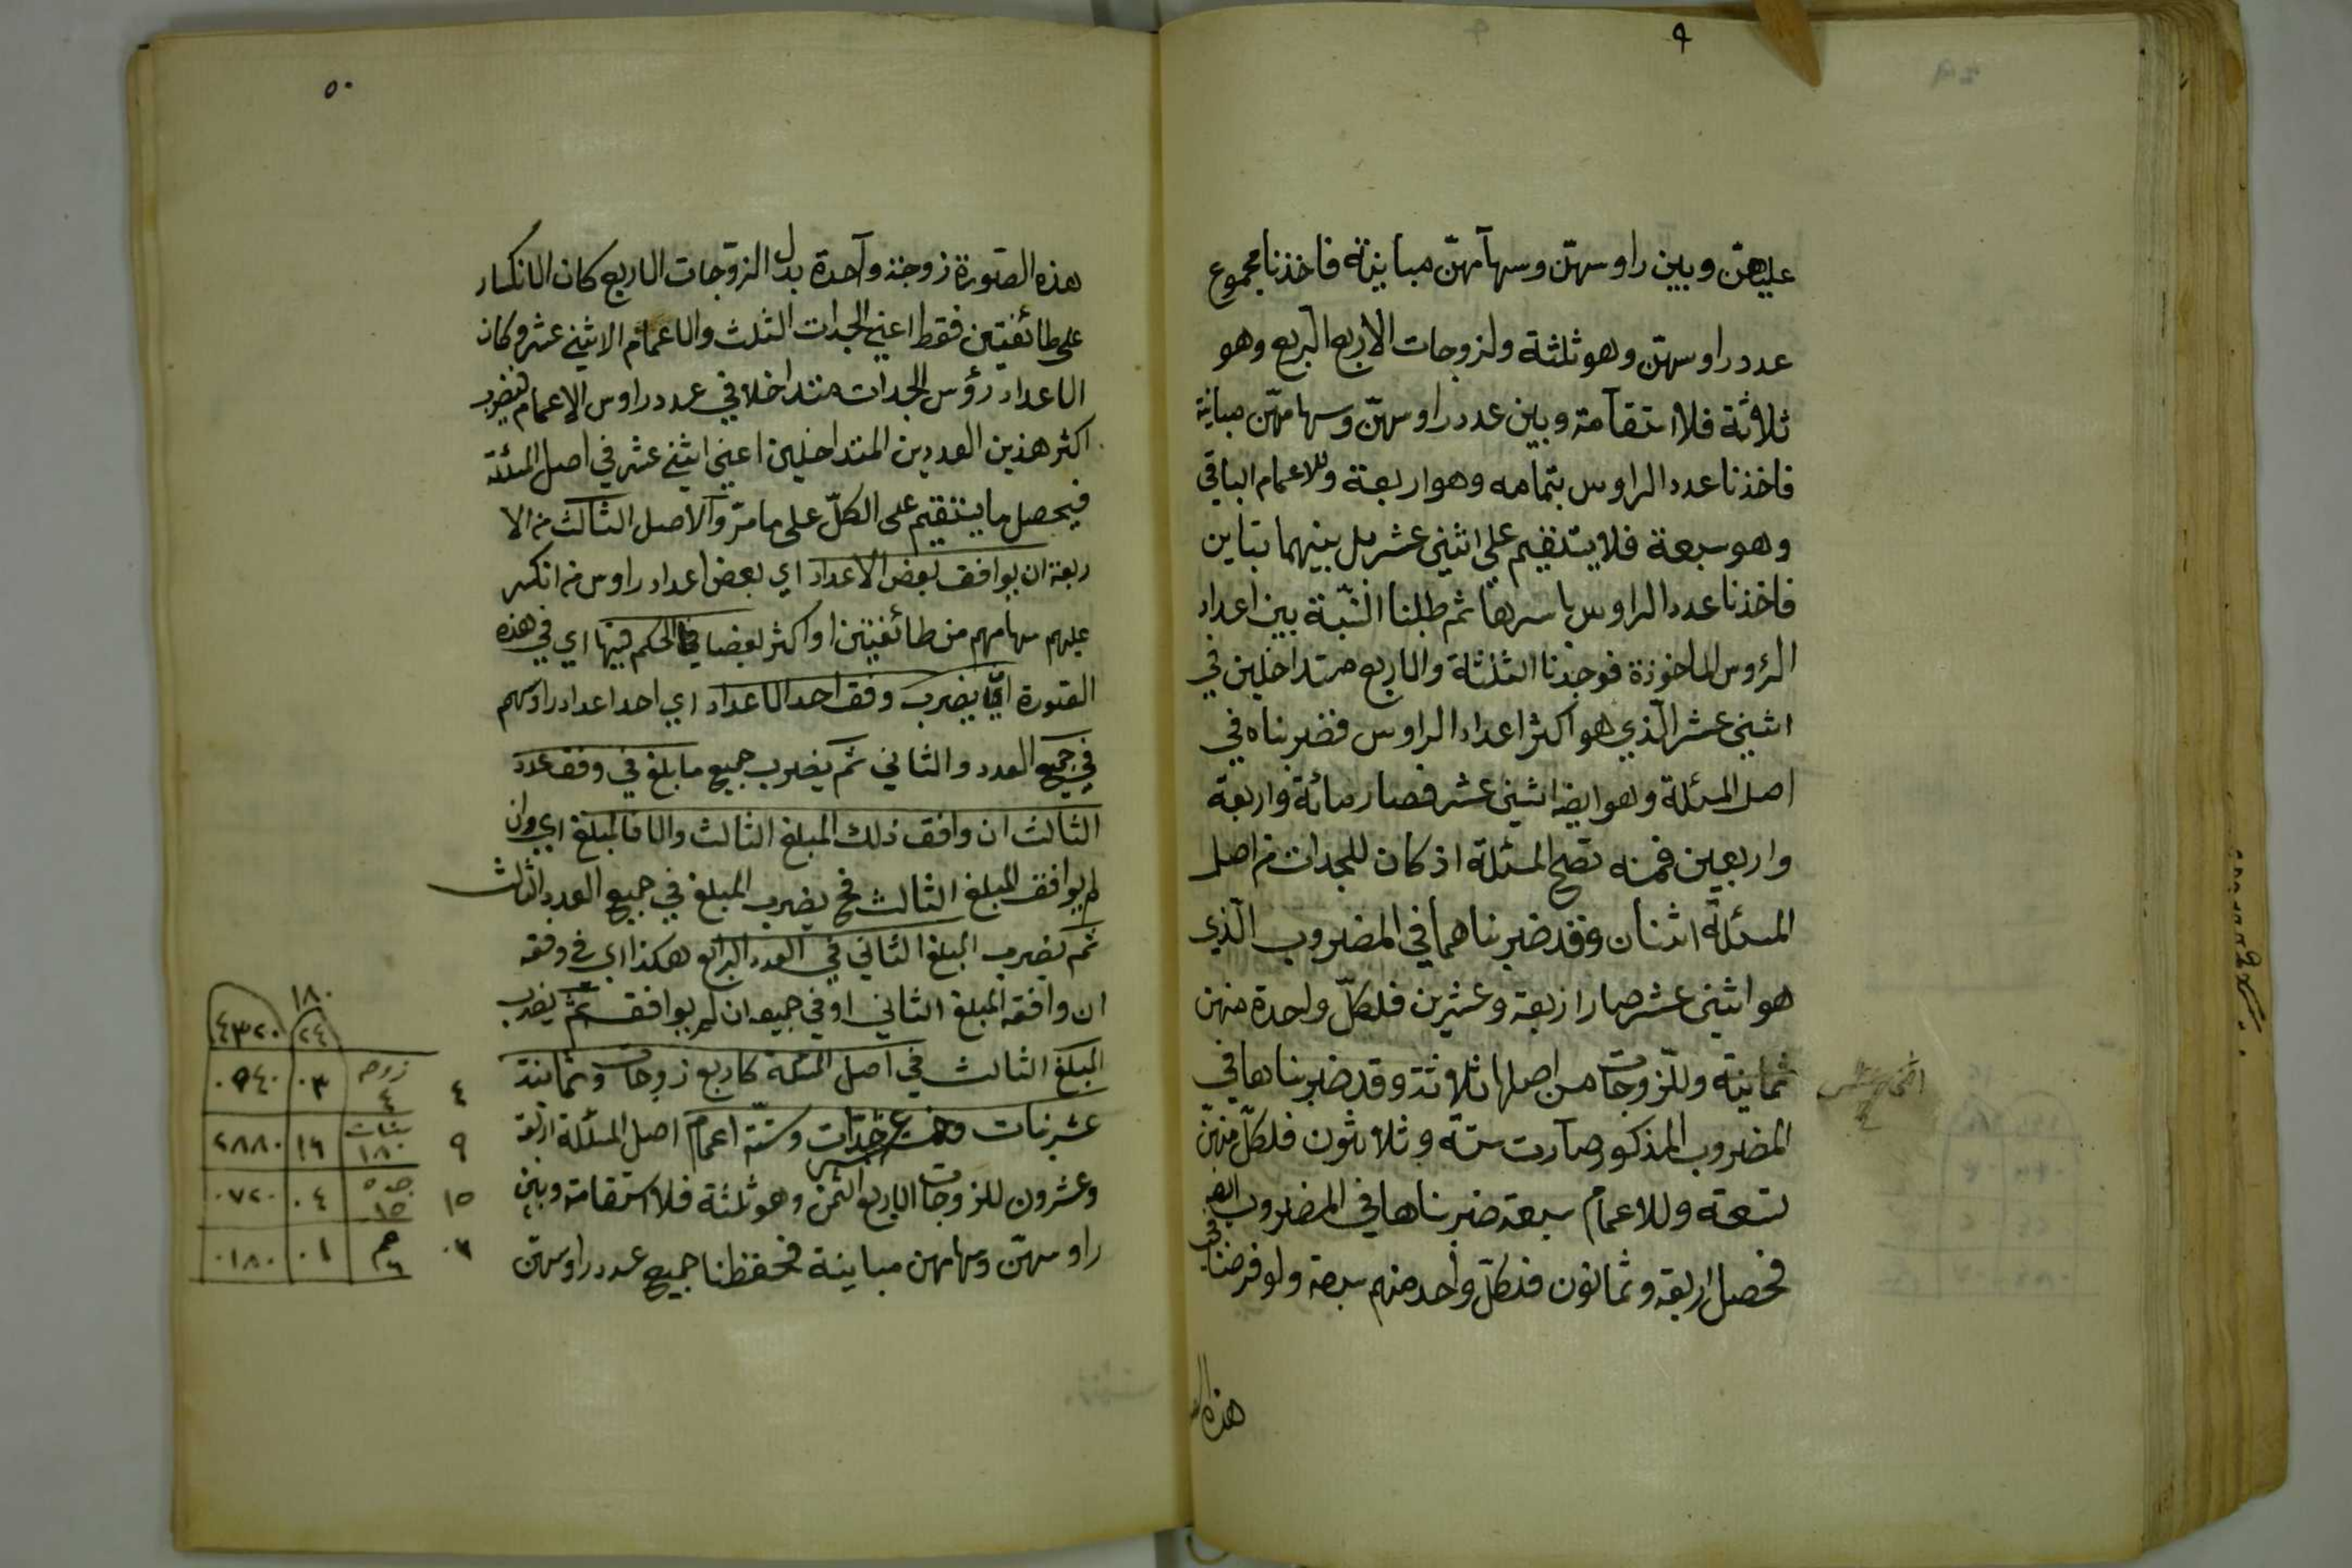 ٩
عليهن وبين راوسهن وسهامهن مباينة فاخذنا مجموع
عدد راوسهن وهو ثلثة ولزوجات الاربع الربع وهو
ثلاثة فلا استقامة وبين عدد راوسهن وسهامهن مباينة
فاخذنا عدد الراوس بتمامه وهو اربعة وللاعمام الباقي
وهو سبعة فلا يستقيم على اثنى عشر بل بينهما تباين
فاخذنا عدد الراوس باسرها ثم طلبنا النسبة بين اعداد
الرؤس الماخوذة فوجدنا الثلثة والاربع متداخلين في
اثنى عشر الذي هو اكثر اعداد الراوس فضربناه في
اصل المسئلة وهو ايضا اثنى عشر فصار مائة واربعة
واربعين فمنه تصح المسئلة اذ كان للجدات من اصل
المسئلة اثنان وقد ضربناهما في المضروب الذي
هو اثنى عشر صار اربعة وعشرين فلكل واحدة منهن
ثمانية وللزوجات من اصلها ثلاثة وقد ضربناها في
المضروب المذكور صارت ستة وثلاثون فلكل منهن
تسعة وللاعمام سبعة ضربناها في المضروب ايضا
فحصل اربعة وثمانون فلكل واحد منهم سبعة ولو فرضنا في
هذه
٥٠
هذه الصورة زوجة واحدة بدل الزوجات الاربع كان الانكسار
على طائفتين فقط اعني الجدات الثلث والاعمام الاثنى عشر وكان
الاعداد رؤس الجدات متداخلا في عدد راوس الاعمام فيضرب
اكثر هذين العددين المتداخلين اعني اثنى عشر في اصل المسئلة
فيحصل ما يستقيم على الكل على ما مر والاصل الثالث من الا
ربعة ان يوافق بعض الاعداد اي بعض اعداد راوس من انكسر
عليهم سهامهم من طائفتين او اكثر بعضا فالحكم فيها اي في هذه
الصورة ان يضرب وفق احد الاعداد اي احد اعداد راوسهم
في جميع العدد والثاني ثم يضرب جميع ما بلغ في وفق عدد
الثالث ان وافق ذلك المبلغ الثالث والا فالمبلغ اي وان
لم يوافق المبلغ الثالث فح يضرب المبلغ في جميع العدد الثالث
ثم يضرب المبلغ الثاني في العدد الرابع هكذا اي في وفقه
ان وافقه المبلغ الثاني او في جميعه ان لم يوافق ثم يضرب
المبلغ الثالث في اصل المسئلة كاربع زوجات وثمانية
عشر بنات وخمس عشر جدات وستة اعمام اصل المسئلة اربعة
وعشرون للزوجات الاربع الثمن وهو ثلثة فلا استقامة وبين
راوسهن وسهامهن مباينة فحفظنا جميع عدد راوسهن
١٨٠
٢٤ ٤٣٢٠
٤ زوجه ٤ ٠٣ ٠٥٤٠
٩ بنات ١٨ ١٦ ٢٨٨٠
١٥ جده ١٥ ٠٤ ٠٧٢٠
٠٦ عم ٦ ٠١ ٠١٨٠